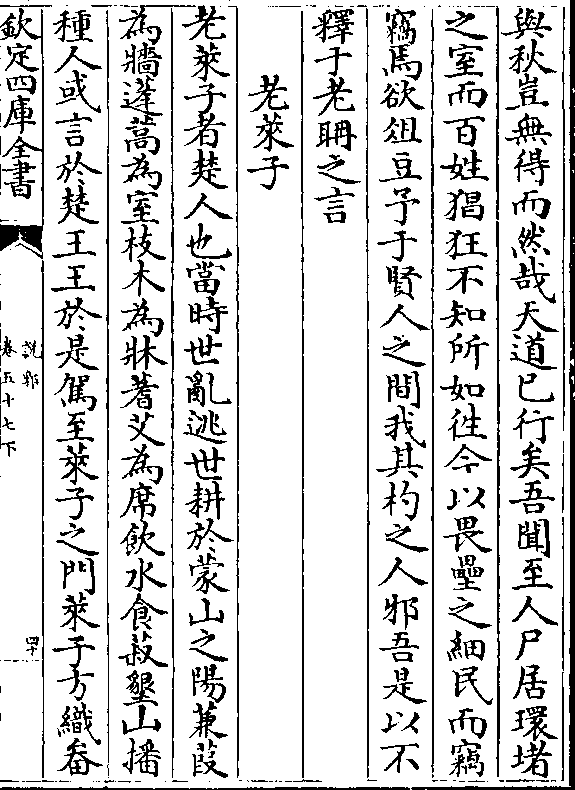 與秋豈無得而然哉天道已行矣吾聞至人尸居環堵
之室而百姓猖狂不知所如徃今以畏壘之細民而竊
竊焉欲俎豆予于賢人之間我其杓之人邪吾是以不
釋于老耼之言
老萊子
老萊子者楚人也當時世亂逃世耕於蒙山之陽蒹葭
為牆蓬蒿為室枝木為牀蓍艾為席飲水食菽墾山播
種人或言於楚王王於是駕至萊子之門萊子方織畚
欽定四庫全書
說郛
卷五十七下